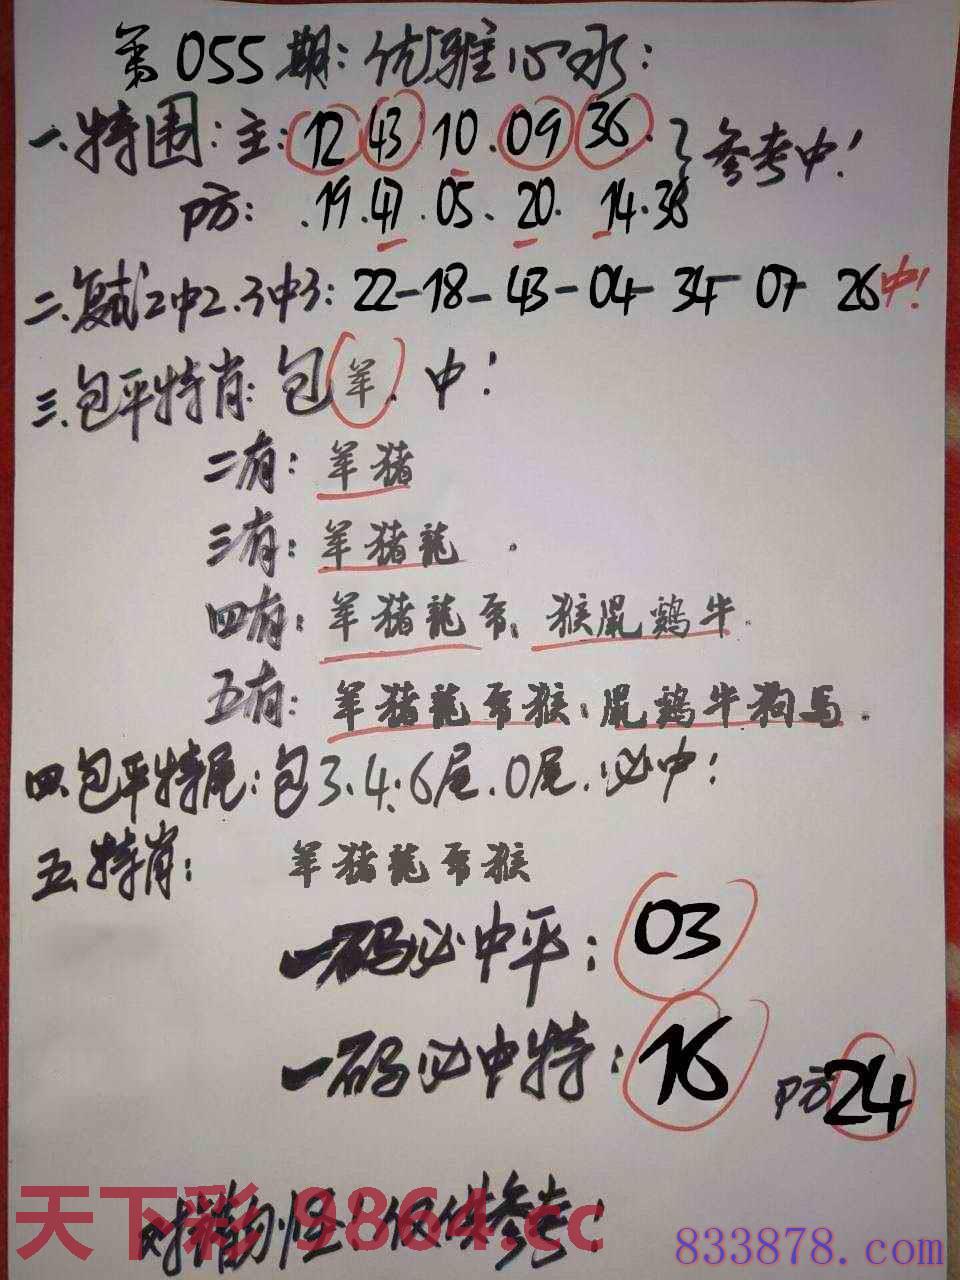 第055期：优雅心水：
一.特围：主：12 43.10.09 36.}参考中！
防：.19.41.05.20.14.38
二.复试2中2.3中3：22-18-43-04-34-07 26中！
三.包平特肖：包羊.中！
二有：羊猪
三有：羊猪龍.
四有：羊猪龍 猴鼠鷄牛.
五有：羊猪龍 猴.鼠鷄牛狗马.
四.包平特尾：包3.4.6尾.0尾.必中！
五.特肖：羊猪龍 猴
一码必中平：03
一码必中特：16 防24
天下彩 9864.cc
错勿怪！仅供参考！
833878.com